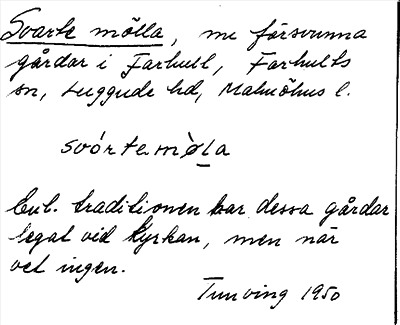 Svarte mölla, nu försvunna
gårdar i Farhult, Farhults
sn, Luggude hd, Malmöhus l.
svórtemø̀la
Enl. traditionen har dessa gårdar
legat vid kyrkan, men när
vet ingen.
Tunving 1950